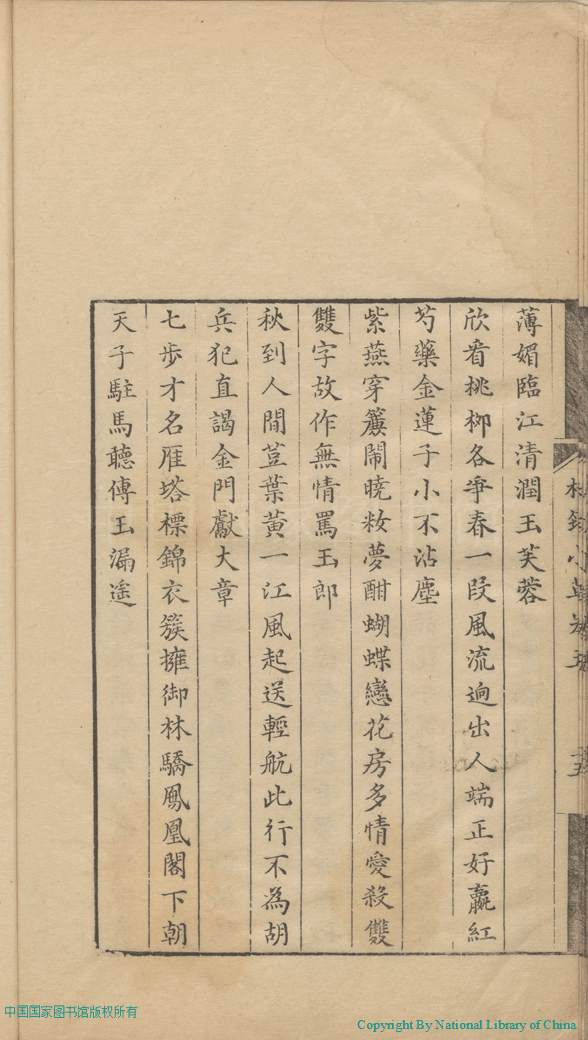 薄媚臨江清潤玉芙蓉
欣看桃柳各爭春一段風流逈出人端正好羸紅
芍藥金蓮子小不沾塵
紫燕穿簾鬧曉妝夢酣蝴蝶戀花房多情愛殺雙
雙字故作無情罵玉郎
秋到人間荳葉黃一江風起送輕航此行不為胡
兵犯直謁金門獻大章
七步才名雁塔標錦衣簇擁御林驕鳳凰閣下朝
天子駐馬聽傳玉漏遙
中国国家图书馆版权所有
Copyright By National Library of China